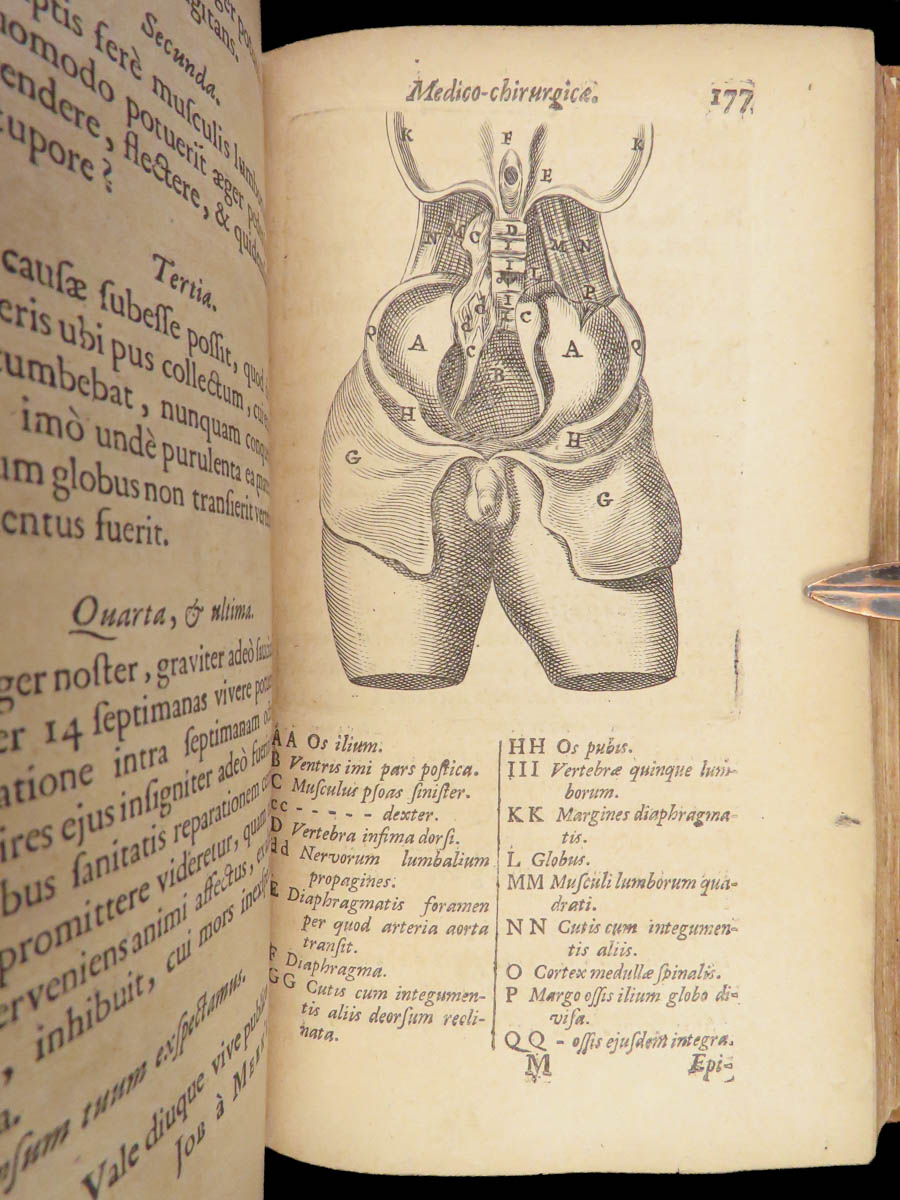 Secunda.
ptis ferè musculis lumbo
nomodo potuerit æger
endere, flectere, & quidem
tupore?
Tertia.
causæ subesse possit, quod
eris ubi pus collectum,
cumbebat, nunquam
imò undè purulenta ea
um globus non transierit
entus fuerit.
Quarta, & ultima.
ger noster, graviter adeò
er 14 septimanas vivere
atione intra septimanam
ires ejus insigniter adeò
bus sanitatis reparationem
promittere videretur, quam
erveniens animi affectus,
, inhibuit, cui mors
nsum tuum exspectamus.
Vale diuque vive
JOB à
Medico-chirurgicæ. 177
K F K
E
N M C D M N
I
I I L
P
d I C
Q d Q
A d A
C B
H H
G G
A A Os ilium.
B Ventris imi pars postica.
C Musculus psoas sinister.
cc - - - - - dexter.
D Vertebra infima dorsi.
dd Nervorum lumbalium
propagines.
E Diaphragmatis foramen
per quod arteria aorta
transit.
F Diaphragma.
GG Cutis cum integumen-
tis aliis deorsum recli-
nata.
HH Os pubis.
III Vertebræ quinque lum-
borum.
KK Margines diaphragma-
tis.
L Globus.
MM Musculi lumborum qua-
drati.
NN Cutis cum integumen-
tis aliis.
O Cortex medullæ spinalis.
P Margo ossis ilium globo di-
visa.
QQ - ossis ejusdem integra.
M Epi-